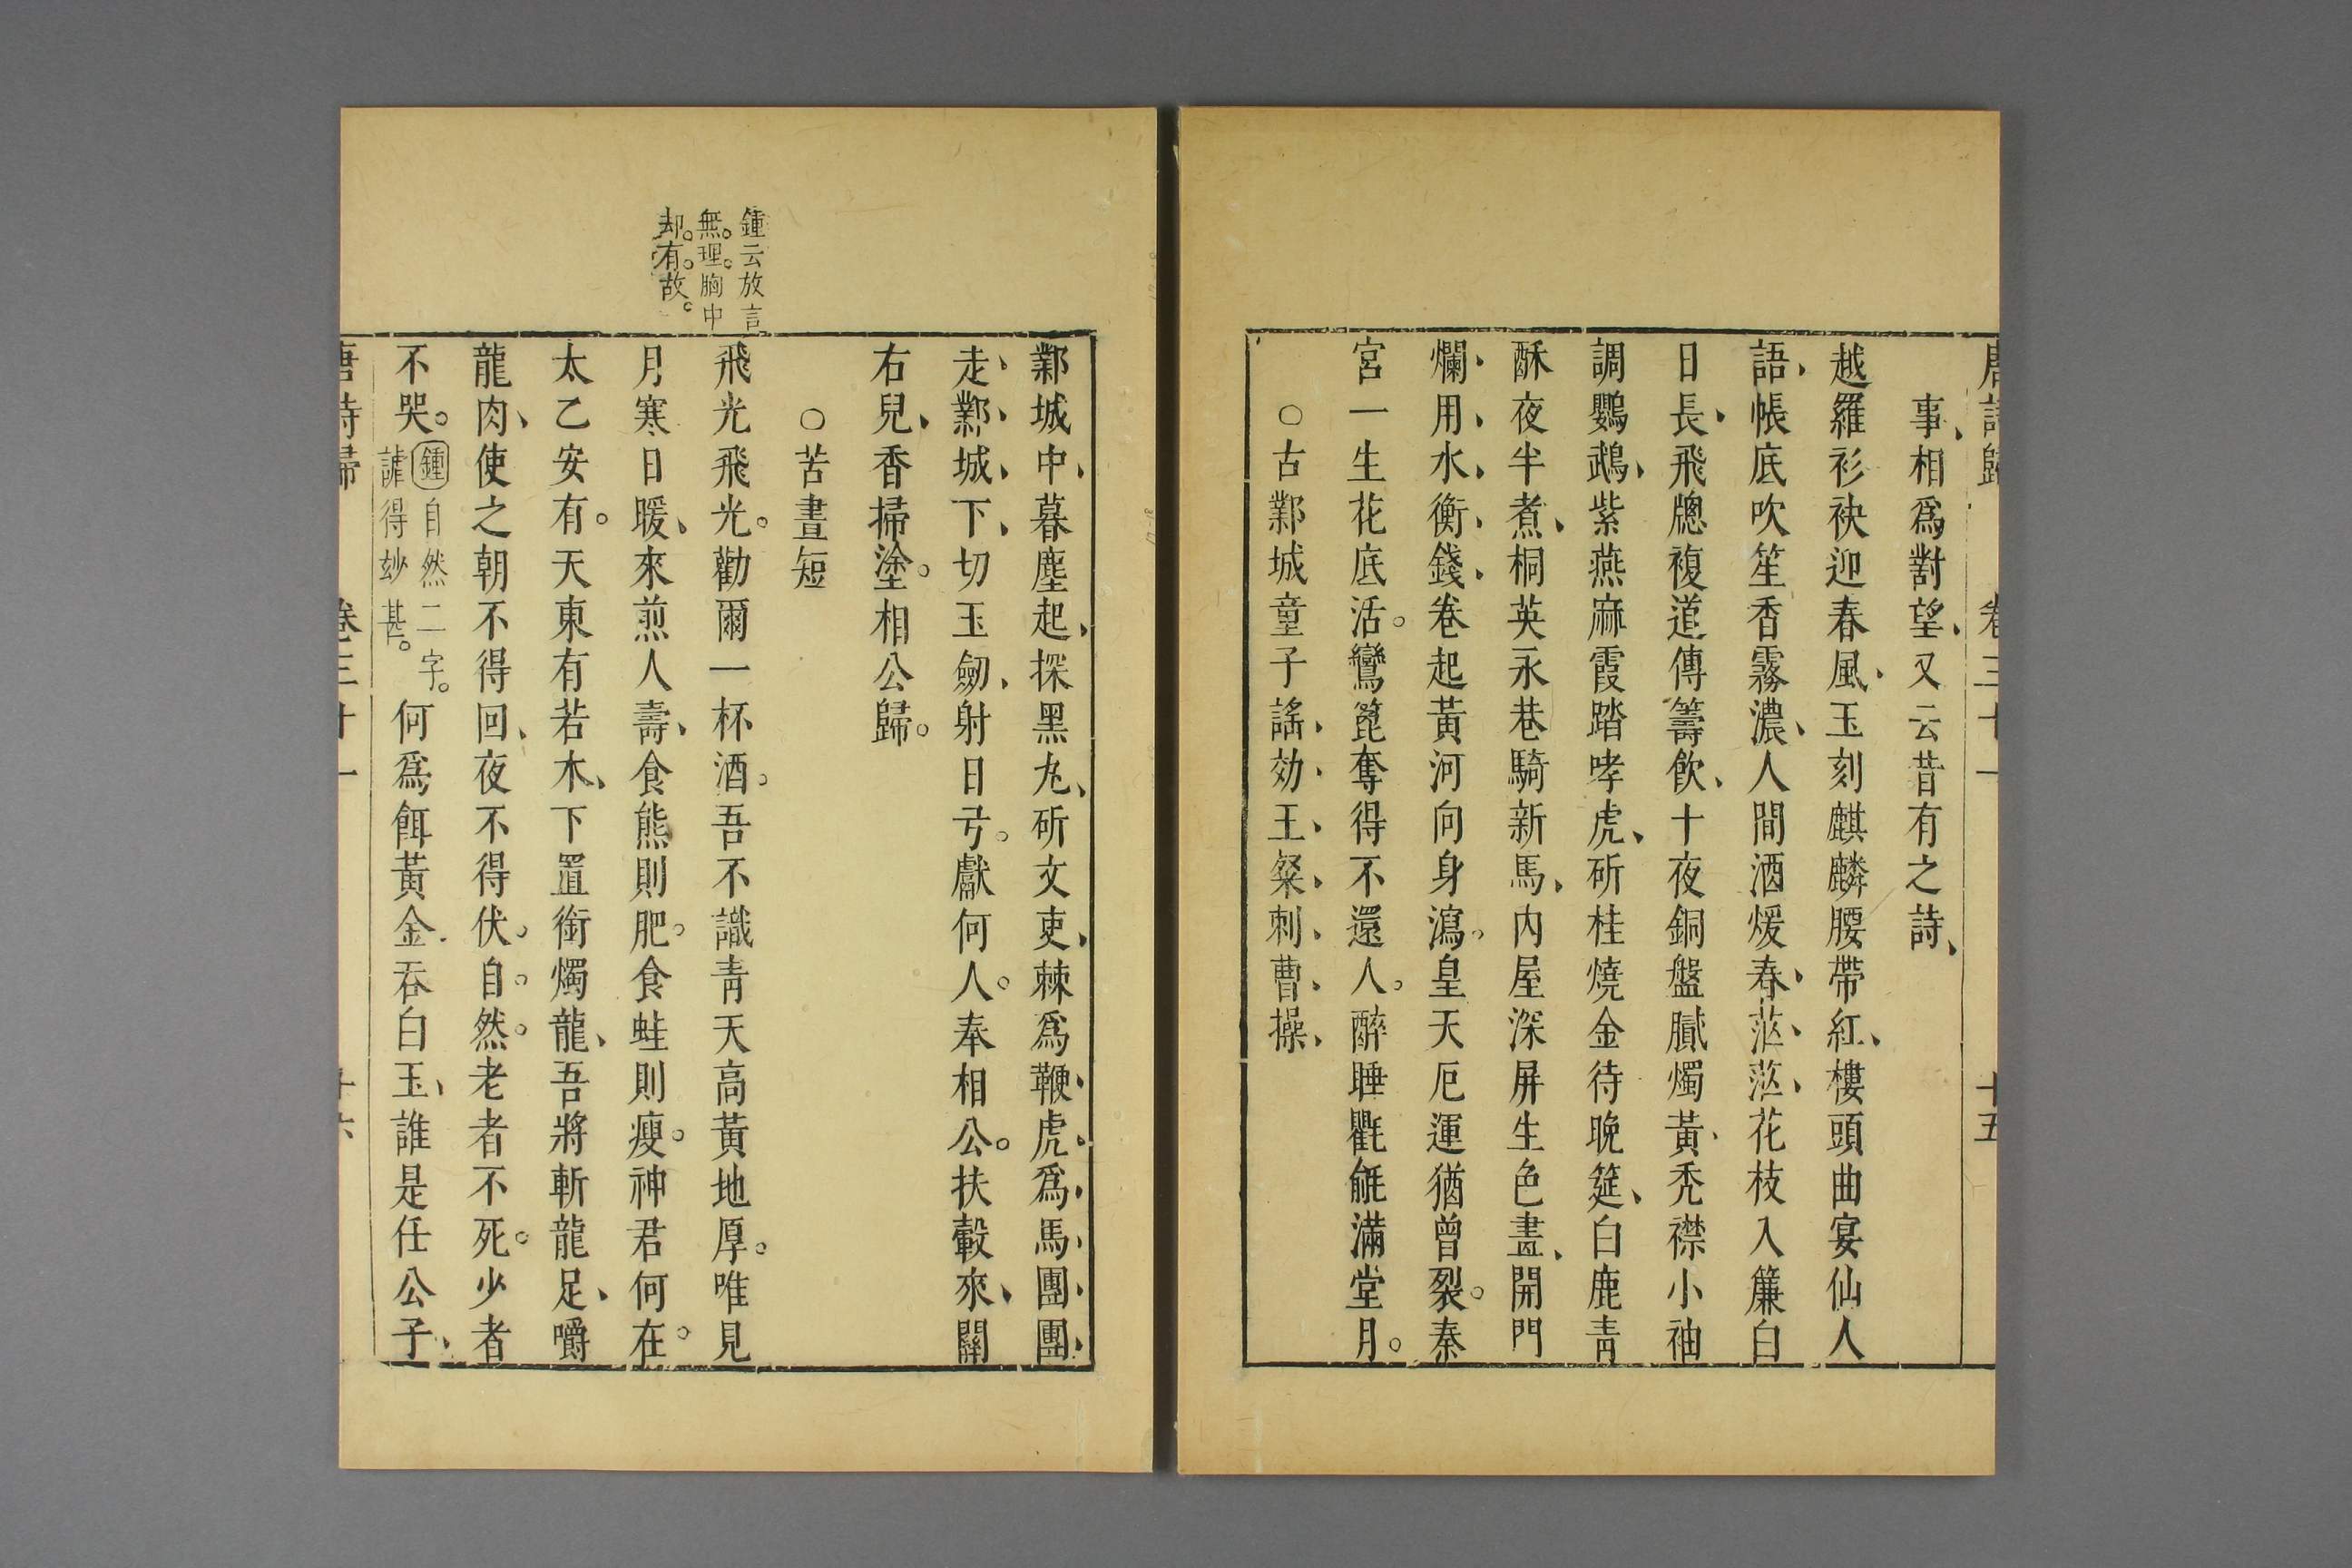 唐詩歸 卷三十一 十五
事、相爲對望、又云昔有之詩、
越羅衫袂迎春風、玉刻麒麟腰帶紅、樓頭曲宴仙人
語、帳底吹笙香霧濃、人間酒煖春、茫、茫、花枝入簾白
日長、飛牕複道傳籌飲、十夜銅盤膩燭黃、禿襟小袖
調鸚鵡、紫燕麻霞踏哮虎、斫桂燒金待晚筵、白鹿青
酥夜半煮、桐英永巷騎新馬、內屋深屏生色畫、開門
爛、用、水、衡、錢、卷起黃河向身瀉。皇天厄運猶曾裂。秦
宮一生花底活。鸞篦奪得不還人。醉睡氍毹滿堂月。
○古鄴城童子謠、効、王、粲、刺、曹、操、
鄴城中、暮塵起、探黑丸、斫文吏、棘爲鞭、虎、爲、馬、團、團、
走、鄴、城、下、切玉劒、射日弓。獻何人。奉相公。扶轂來、關
右兒、香掃塗。相公歸。
○苦晝短
鍾云放言
無。理。胸中
却。有。故。
飛光飛光。勸爾一杯酒。吾不識青天高黃地厚。唯見
月寒日暖、來煎人壽、食熊則肥。食蛙則瘦。神君何在。
太乙安有。天東有若木、下置銜燭龍、吾將斬龍足、嚼
龍肉、使之朝不得回、夜不得伏。自。然。老者不死。少者
不哭。鍾自然二字。謔得玅甚。何爲餌黃金、吞白玉、誰是任公子、
唐詩歸 卷三十一 十六